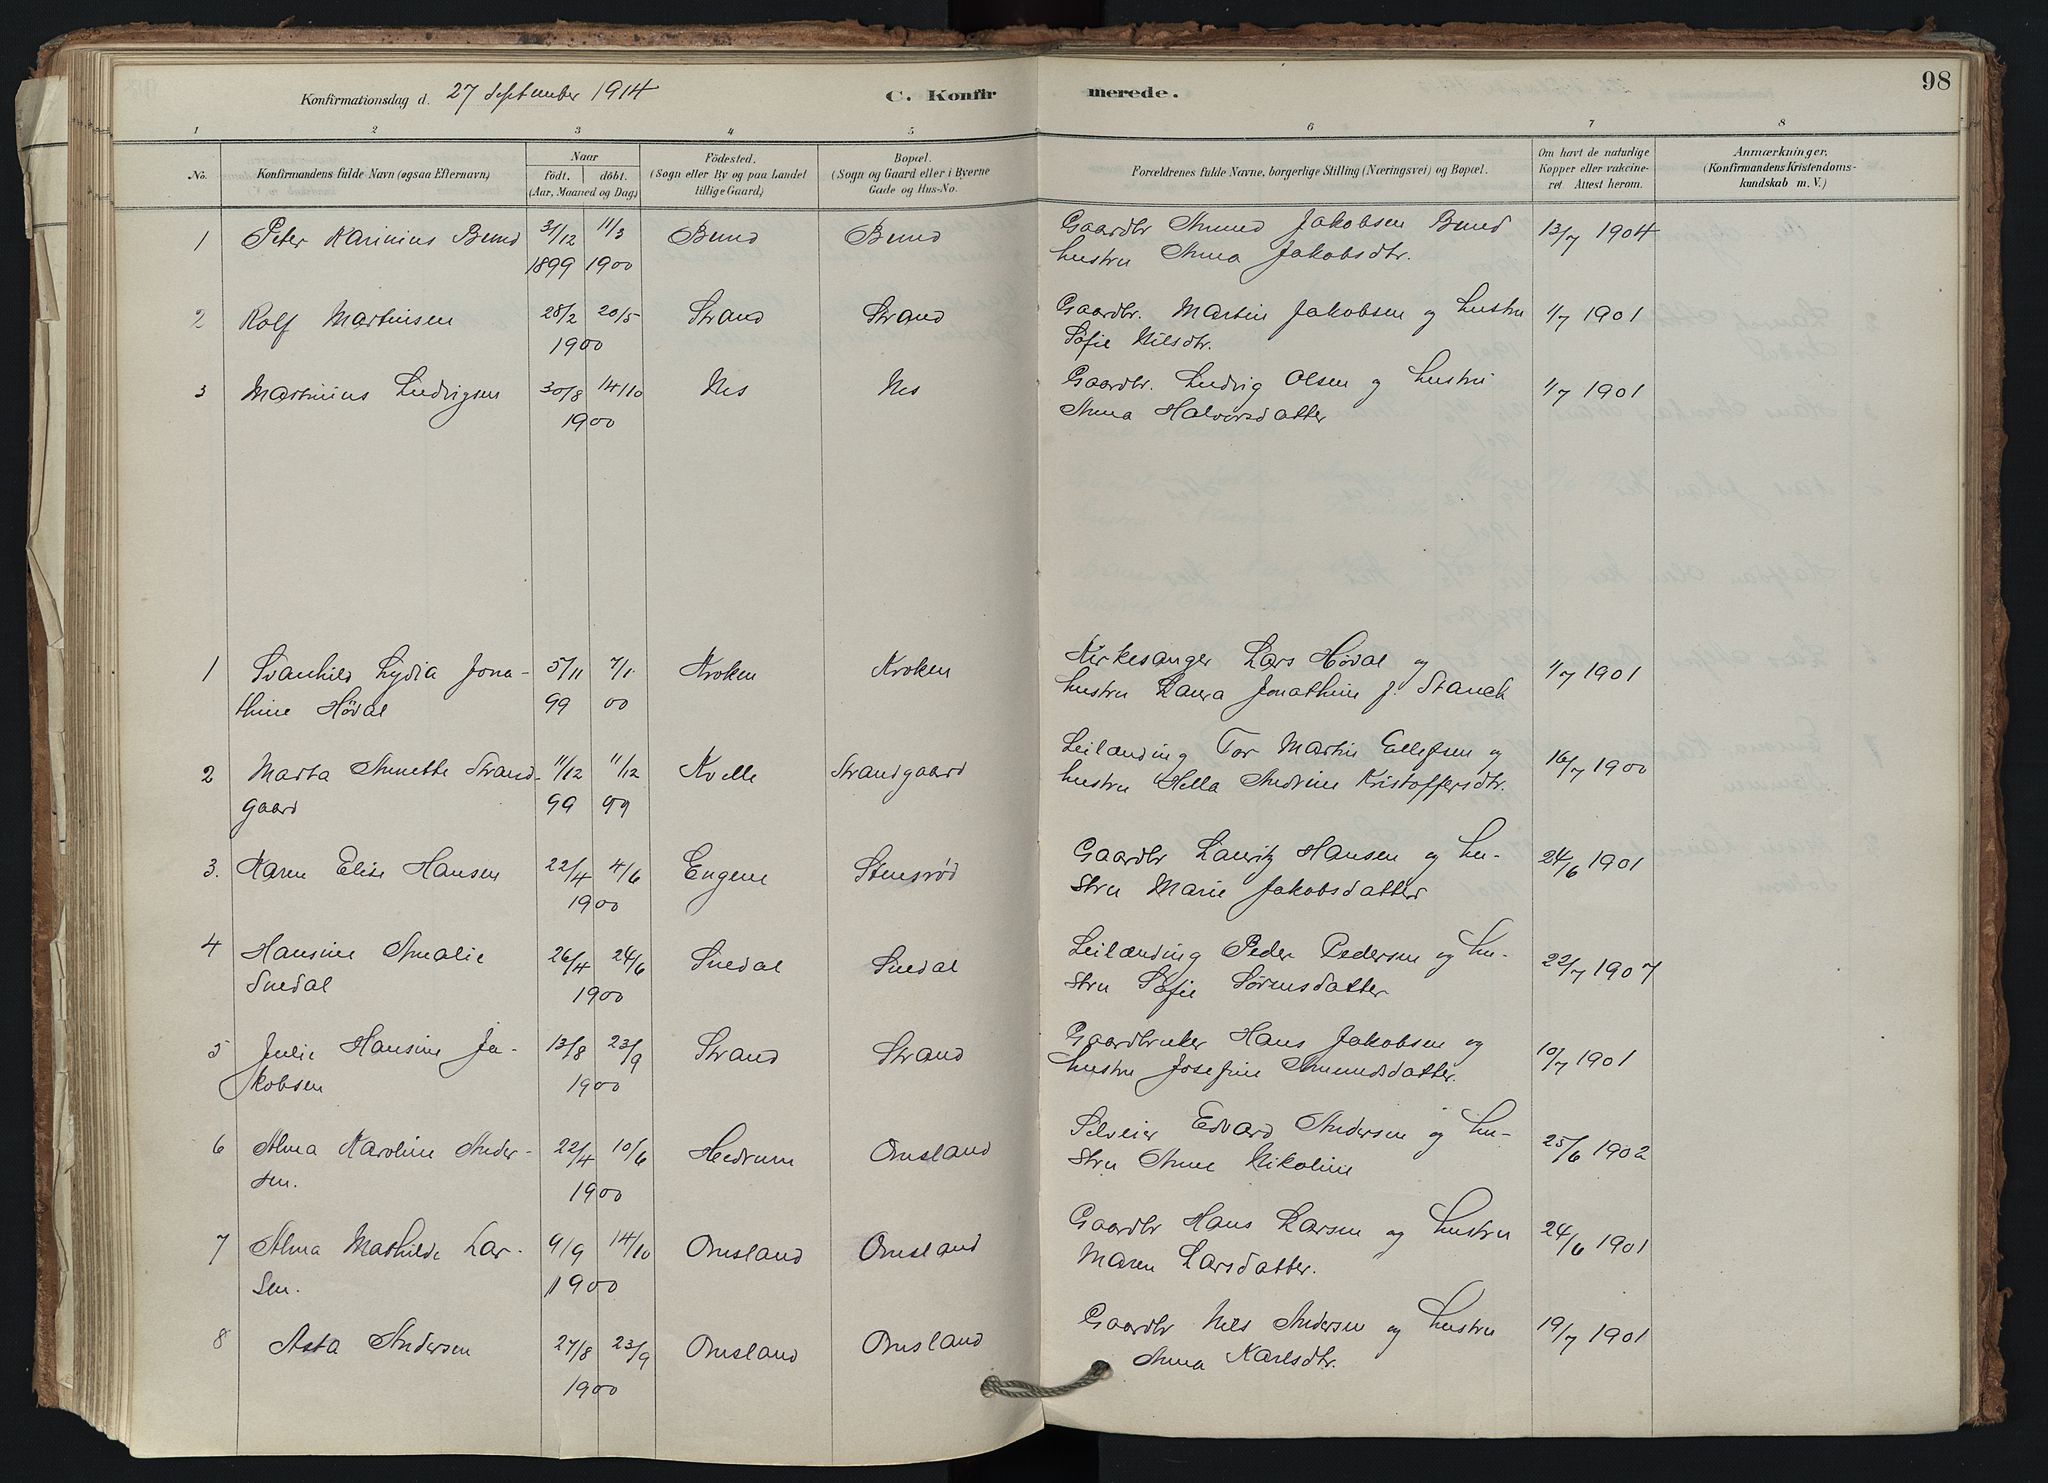 98
Konfirmationsdag d. 27 september 1914
C. Konfirmerede.
1 2 3 4 5 6 7 8
No.
Konfirmandens fulde Navn (ogsaa Efternavn)
Naar
födt. döbt.
(Aar, Maaned og Dag)
Födested.
(Sogn eller By og paa Landet
tillige Gaard)
Bopæl.
(Sogn og Gaard eller i Byerne
Gade og Hus-No.
Forældrenes fulde Navne, borgerlige Stilling (Næringsvei) og Bopæl.
Om havt de naturlige
Kopper eller vakcine-
ret. Attest herom.
Anmærkninger.
(Konfirmandens Kristendoms-
kundskab m. V.)
1 Peter Karinius Bund 31/12 11/3 Bund Bund Gaardbr Amund Jakobsen Bund 13/7 1904
1899 1900 hustru Anna Jakobsdtr.
2 Rolf Martinsen 28/2 20/5 Strand Strand Gaardbr. Martin Jakobsen og hustru 1/7 1901
1900 Sofie Nilsdtr.
3 Martinius Ludvigsen 30/8 14/10 Nes Nes Gaardbr. Ludvig Olsen og hustru 1/7 1901
1900 Anna Halvorsdatter
1 Svanhild Lydia Jona- 5/11 7/1 Kroken Kroken Kirkesanger Lars Høval og 1/7 1901
thine Høval 99 00 hustru Laura Jonathine f. Stanck
2 Marta Annette Strand- 11/12 11/12 Kvelle Strandgaard Leilænding Tor Martin Ellefsen og 16/7 1900
gaard 99 99 hustru Hella Andrine Kristoffersdtr.
3. Karen Elise Hansen 22/4 4/6 Engene Stensrød Gaardbr Lauritz Hansen og hu- 24/6 1901
1900 stru Marie Jakobsdatter
4 Hansine Amalie 26/4 24/6 Snedal Snedal Leilænding Peder Pedersen og hu- 22/7 1907
Snedal 1900 stru Sofie Sørensdatter
5 Julie Hansine Ja- 13/8 23/9 Strand Strand Gaardbruker Hans Jakobsen og 10/7 1901
kobsen 1900 hustru Josefine Amundsdatter.
6 Alma Karoline Ander- 22/4 10/6 Hedrum Omsland Selveier Edvard Andersen og hu- 25/6 1902
sen. 1900 stru Anne Nikoline
7 Alma Mathilde Lar- 9/9 14/10 Omsland Omsland Gaardbr Hans Larsen og hustru 24/6 1901
sen. 1900 Maren Larsdatter.
8 Asta Andersen 27/8 23/9 Omsland Omsland Gaardbr Nils Andersen og hustru 19/7 1901
1900 Anna Karlsdtr.